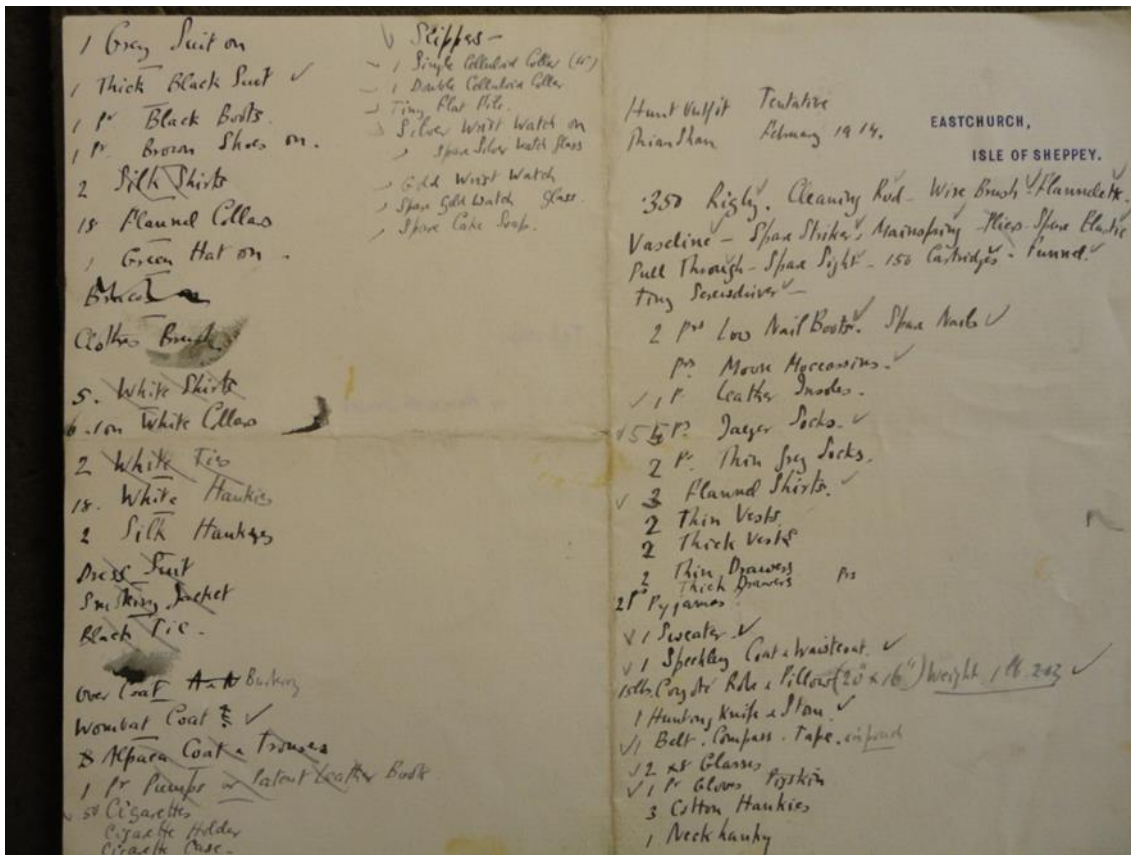 1 Grey Suit on
1 Thick Black Suit ✓
1 Pr Black Boots.
1 Pr. Brown Shoes on.
2 Silk Shirts
18 Flannel Collars
1 Green Hat on.
Braces on
Clothes Brush.
5. White Shirts
6. 1 on White Collars
2 White Ties
18. White Hankies
2 Silk Hankeys
Dress Suit
Smoking Jacket
Black Tie.
Over Coat
Wombat Coat ✓
Alpaca Coat & Trousers
1 Pr Pumps or Patent Leather Boots
50 Cigarettes
Cigarette Holder
Cigarette Case.
Slippers
1 Single Celluloid Collar
1 Double Celluloid Collar
Tiny Flat File.
Silver Wrist Watch on
Spare Silver Watch Glass
Gold Wrist Watch
Spare Gold Watch Glass.
Spare Cake Soap.
EASTCHURCH,
ISLE OF SHEPPEY.
Hunt Outfit Tentative
Thian Shan February 1914.
.350 Rigby. Cleaning Rod - Wire Brush - Flannelette.
Vaseline - Spare Striker, Mainspring - Pliers - Spare Elastic
Pull Through - Spare Sight - 150 Cartridges - Funnel
Tiny Screwdriver -
2 Prs Low Nail Boots. Spare Nails ✓
prs Moose Moccassins. ✓
✓ 1 P Leather Insoles.
✓ 5 Ps Jaeger Socks. ✓
2 Pr Thin Grey Socks.
✓ 3 Flannel Shirts. ✓
2 Thin Vests
2 Thick Vests
2 Thin Drawers
Thick Drawers Prs
2 P Pyjamas
✓ 1 Sweater ✓
✓ 1 Speckley Coat & Waistcoat. ✓
15lbs. Coyote Robe & Pillow (20" x 16") Weight 1 lb. 2oz ✓
1 Hunting Knife & Stone. ✓
✓ 1 Belt. Compass. Tape.
✓ 2 x8 Glasses
✓ 1 Pr Gloves Pigskin
3 Cotton Hankies
1 Neck hanky